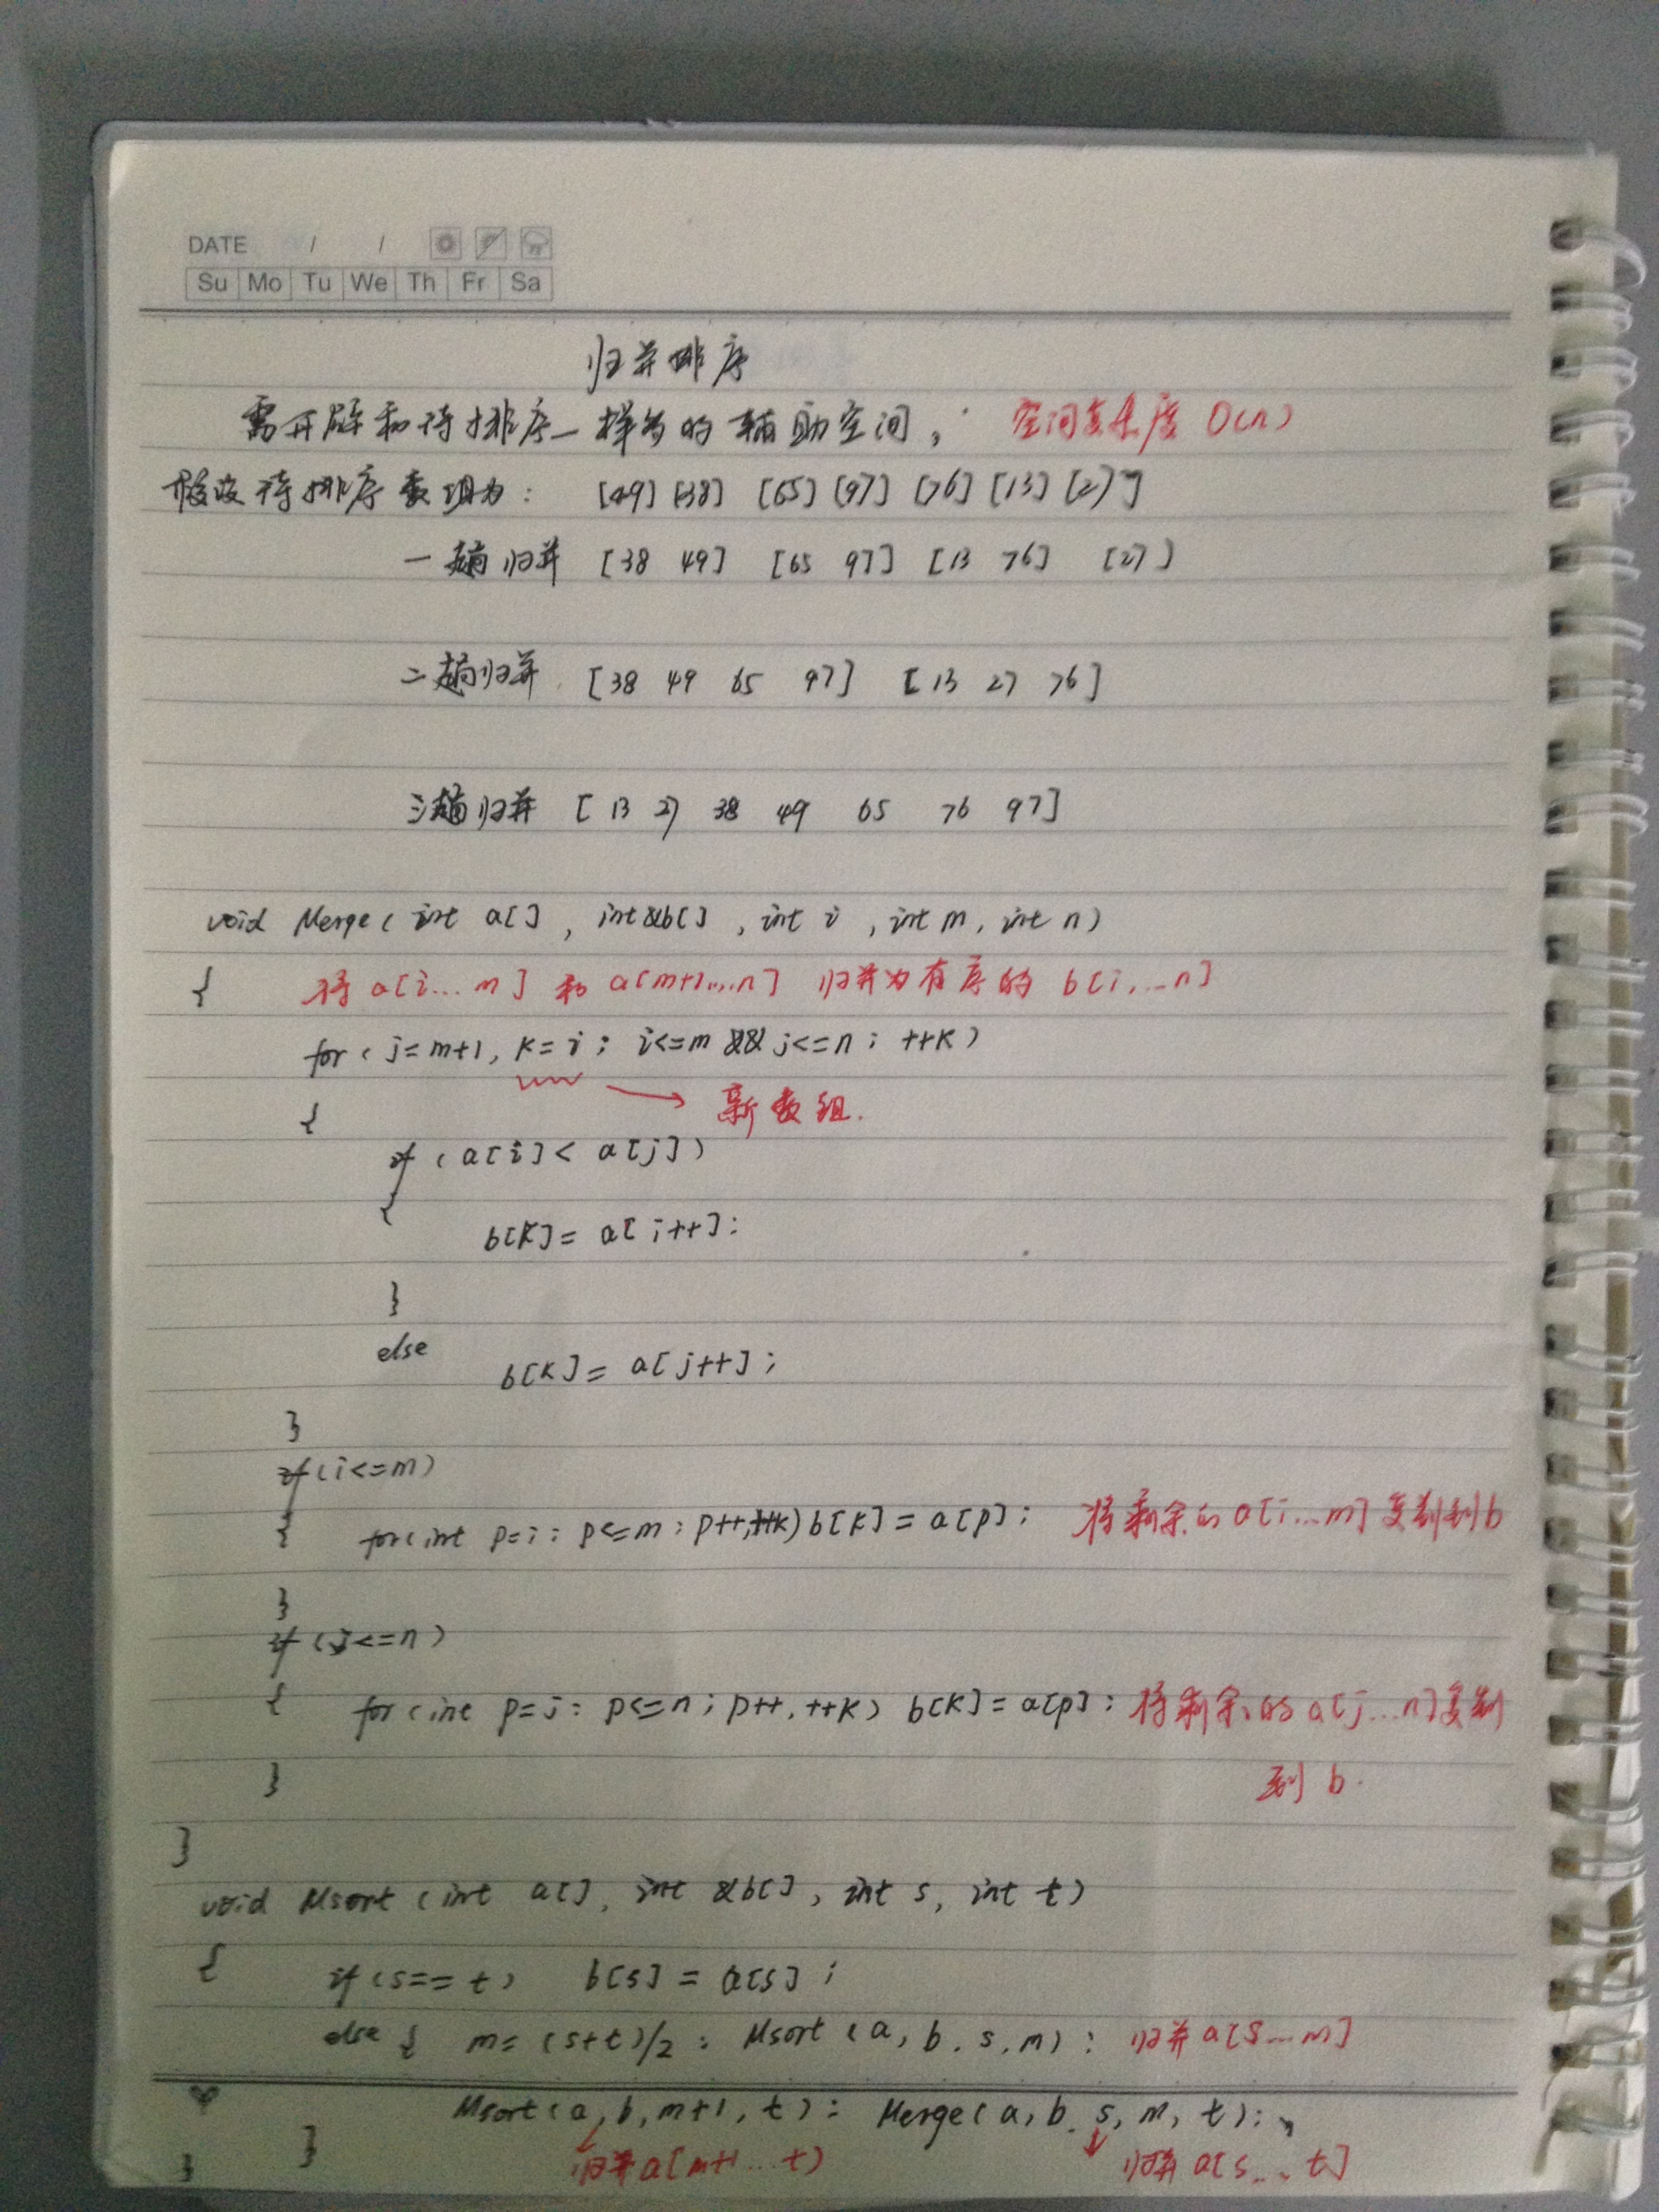 DATE / /
Su Mo Tu We Th Fr Sa
归并排序
需开辟和待排序一样多的辅助空间; 空间复杂度 O(n)
假设待排序数组为: [49] [38] [65] [97] [76] [13] [27]
一趟归并 [38 49] [65 97] [13 76] [27]
二趟归并 [38 49 65 97] [13 27 76]
三趟归并 [13 27 38 49 65 76 97]
void Merge(int a[], int &b[], int i, int m, int n)
{ 将 a[i...m] 和 a[m+1...n] 归并为有序的 b[i,...n]
for(j=m+1, k=i; i<=m && j<=n; ++k)
{ 新数组.
if(a[i]< a[j])
{
b[k]= a[i++];
}
else
b[k]= a[j++];
}
if(i<=m)
{ for(int p=i; p<=m; p++,++k) b[k]=a[p]; 将剩余的a[i...m]复制到b
}
if(j<=n)
{ for(int p=j; p<=n; p++,++k) b[k]=a[p]; 将剩余的a[j...n]复制
} 到 b.
}
void Msort(int a[], int &b[], int s, int t)
{ if(s==t) b[s]=a[s];
else { m=(s+t)/2; Msort(a, b, s, m); 归并a[s...m]
Msort(a, b, m+1, t); Merge(a, b, s, m, t);
} 归并a[m+1...t) 归并a[s...t]
}